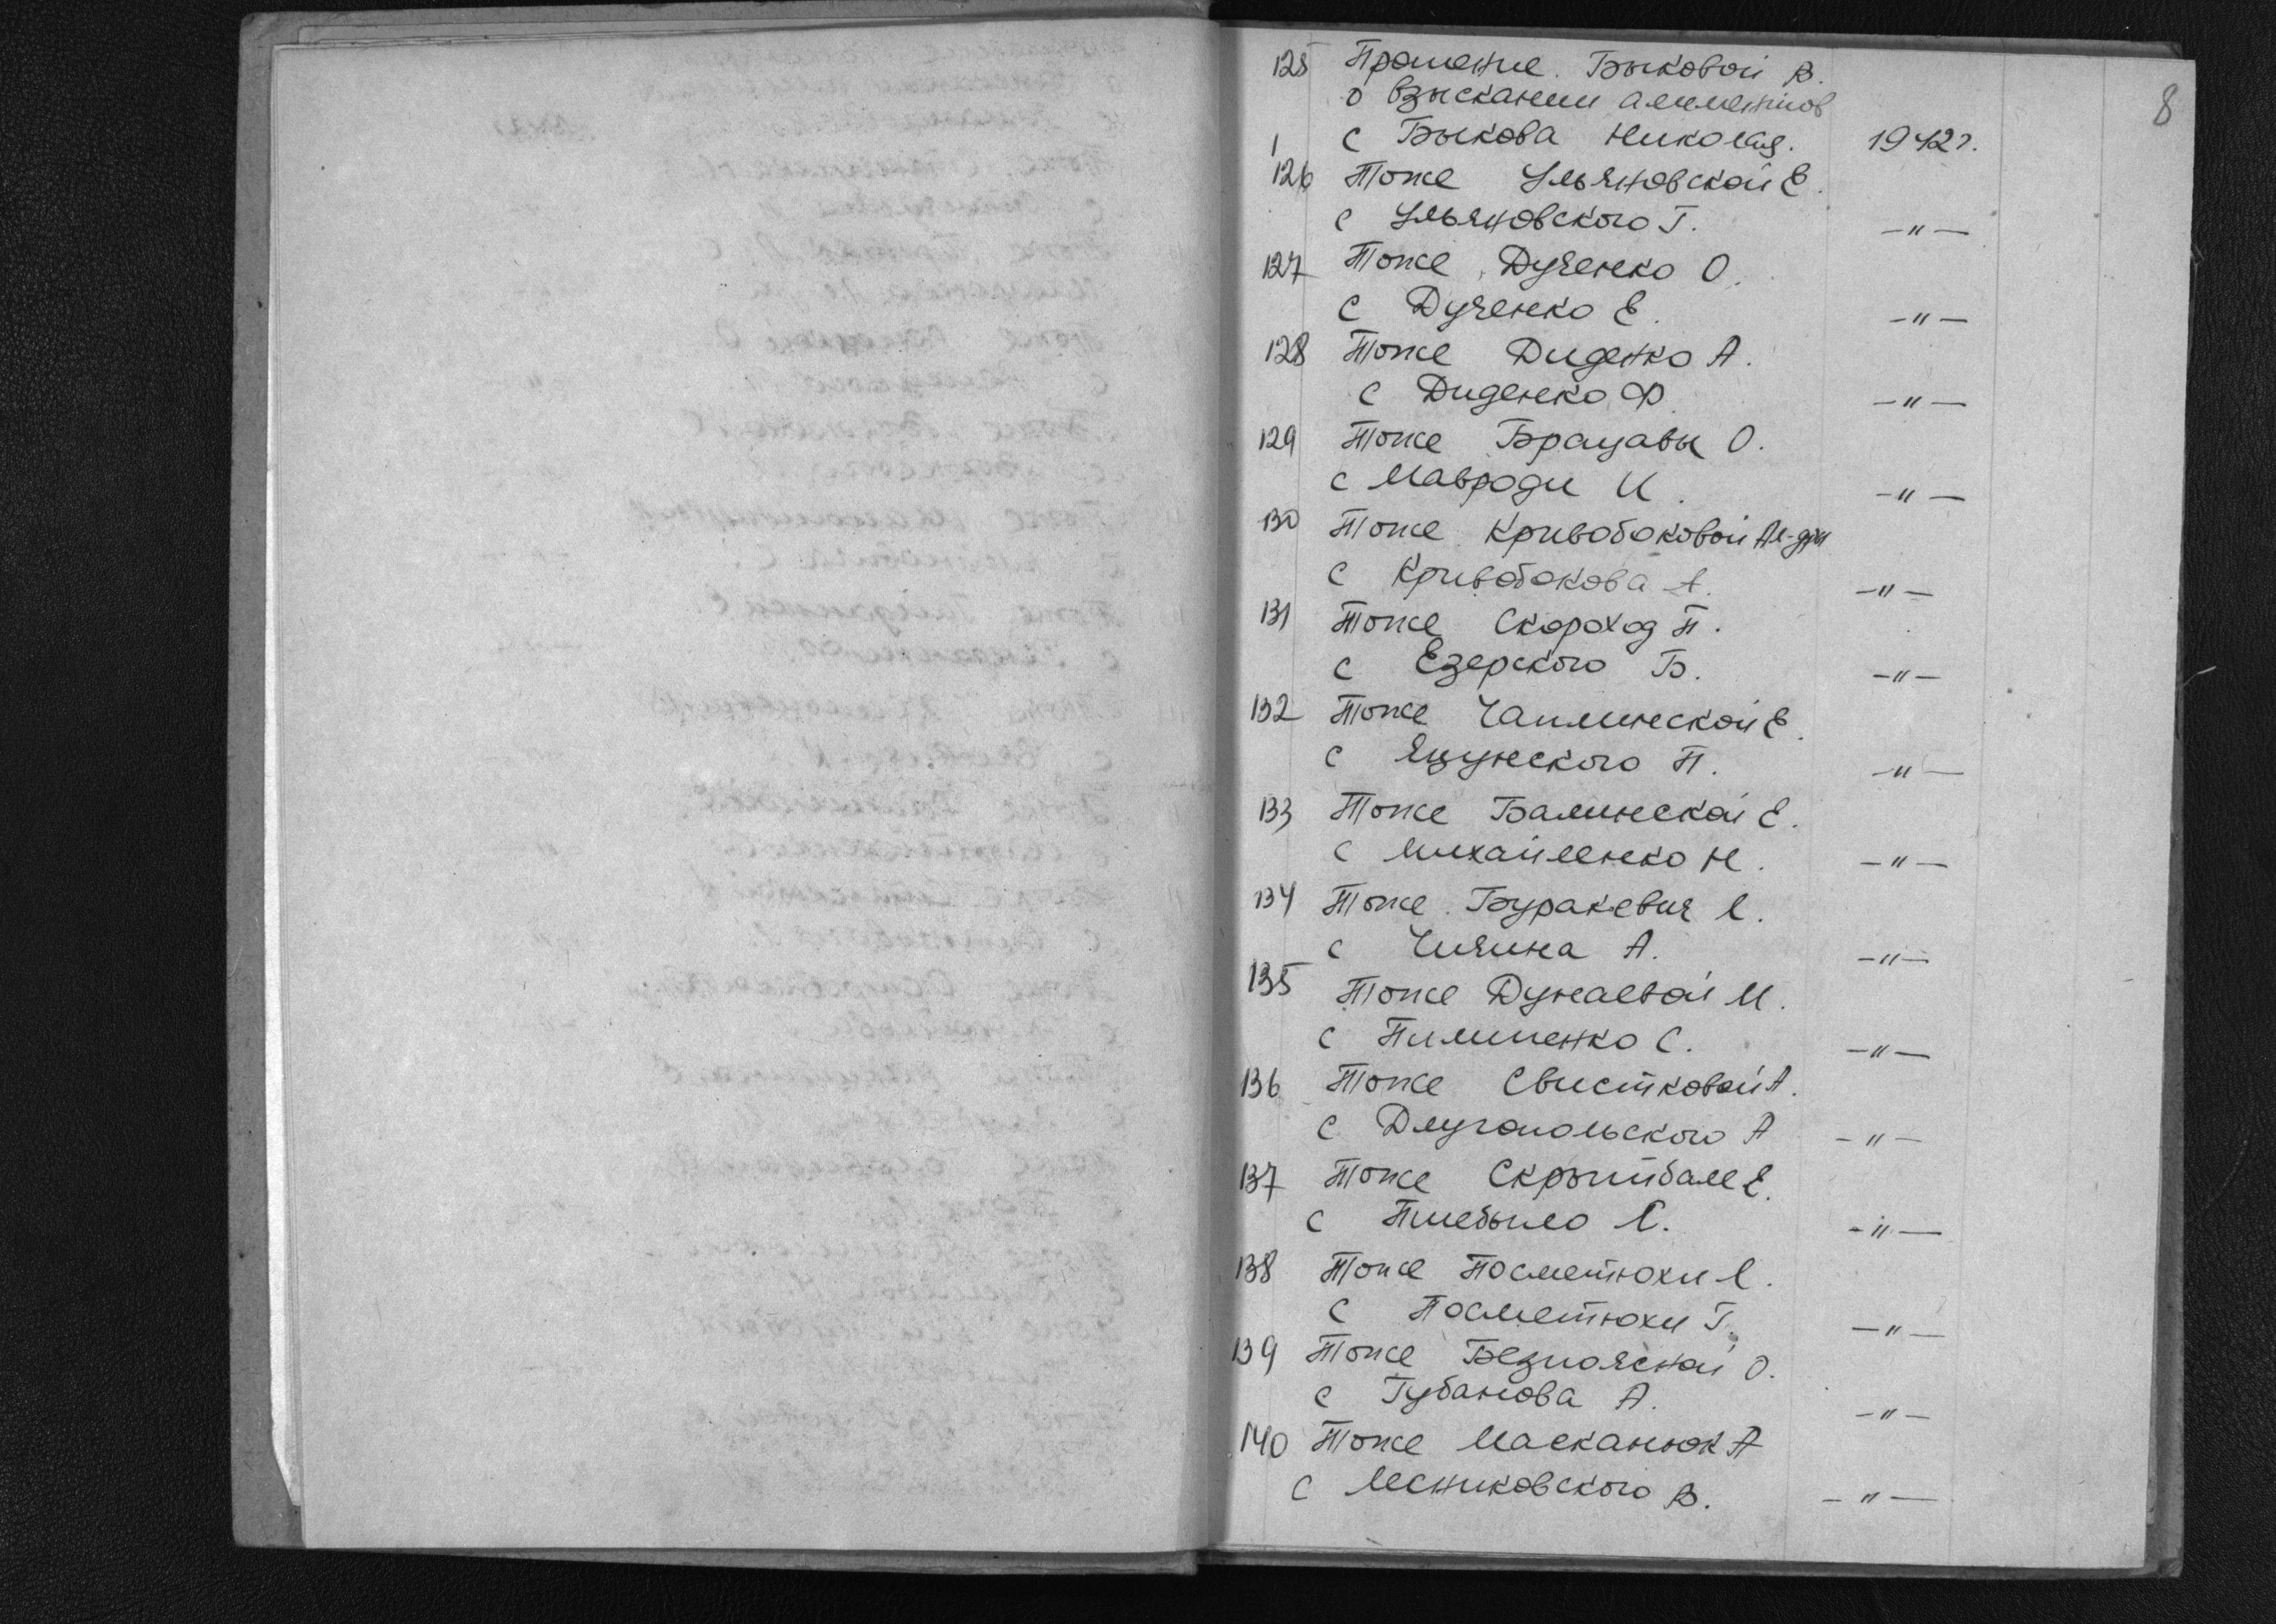 8
125 Прошение Быковой В.
о взыскании алиментов
1 с Быкова Николая. 1942г.
126 Тоже Ульяновской Е.
с Ульяновского Г. —"—
127 Тоже Дученко О.
с Дученко Е. —"—
128 Тоже Диденко А.
с Диденко Ф. —"—
129 Тоже Брацавы О.
с Мавроди И. —"—
130 Тоже Кривобоковой Ал-дры
с Кривобокова А. —"—
131 Тоже Скороход П.
с Езерского Б. —"—
132 Тоже Чаплинской Е.
с Яцунского П. —"—
133 Тоже Балинской Е.
с Михайленко Н. —"—
134 Тоже Буракевич Л.
с Чичина А. —"—
135 Тоже Дунаевой М.
с Пилипенко С. —"—
136 Тоже Свистковой А.
с Длугопольского А —"—
137 Тоже Е.
с С. —"—
138 Тоже Посметюхи Л.
с Посметюхи Г. —"—
139 Тоже Безпоясной О.
с Губанова А. —"—
140 Тоже Масканюк А
с Лесниковского В. —"—